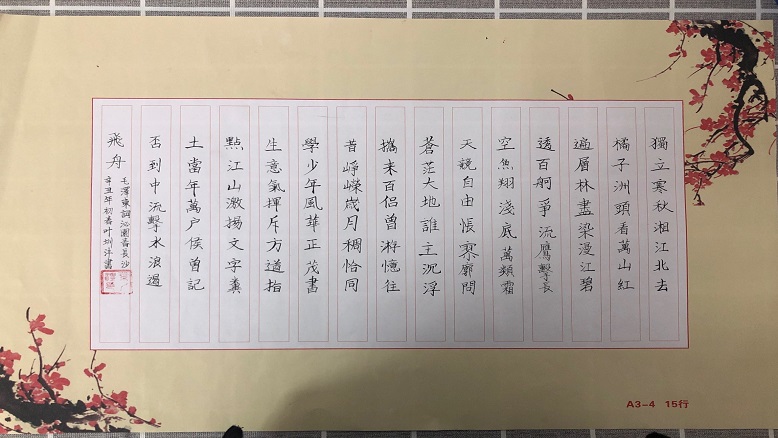 獨立寒秋湘江北去
橘子洲頭看萬山紅
遍層林盡染漫江碧
透百舸爭流鷹擊長
空魚翔淺底萬類霜
天競自由悵寥廓問
蒼茫大地誰主沉浮
攜來百侶曾游憶往
昔崢嶸歲月稠恰同
學少年風華正茂書
生意氣揮斥方遒指
點江山激揚文字糞
土當年萬戶侯曾記
否到中流擊水浪遏
飛舟
毛澤東詞沁園春長沙
辛丑年初春叶
書
A3-4 15行